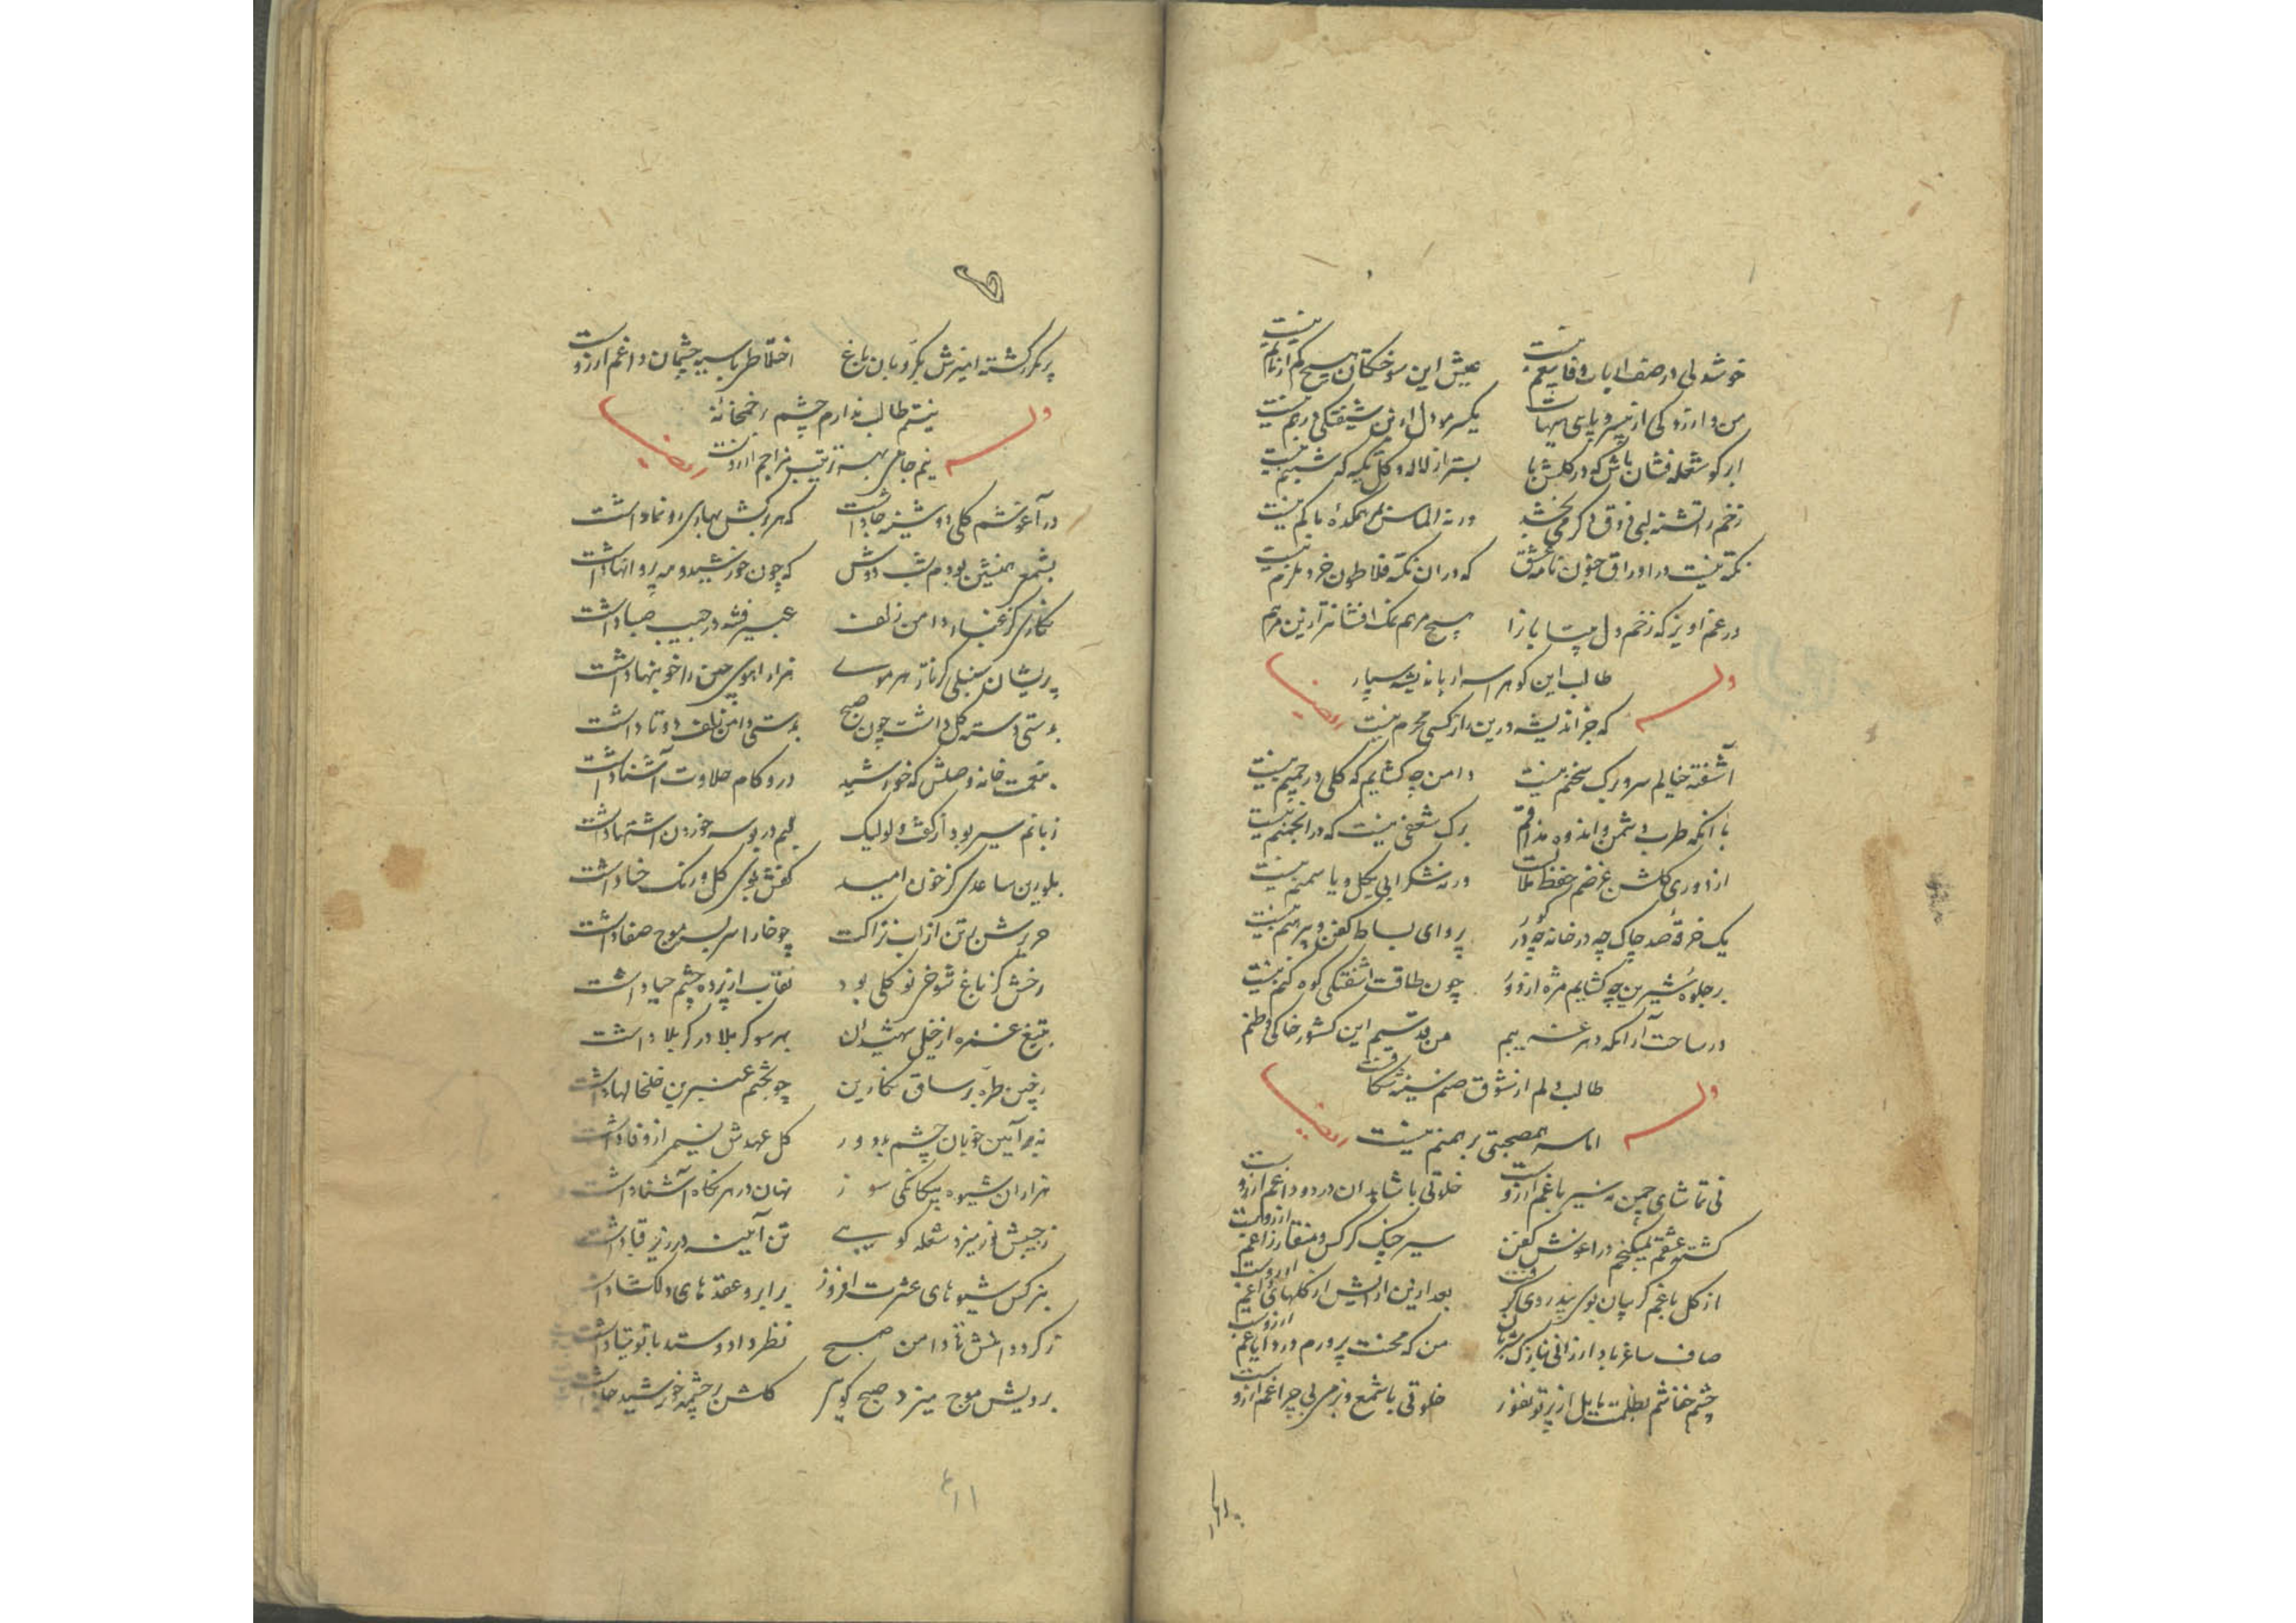 خوشدلی در صف ارباب وفا بیغم نیست عیش این سوختگان هیچ کم از ماتم نیست
من و ارزو کی از سر و پای هیهات یکسر مو دل من شیفتگی درهم نیست
ابر کو شعله فشان باش که در گلشن ما بستر از لاله و گل تکیه که شبنم نیست
زخم را تشنه لبی ذوق دکر می بخشد ورنه الماس در همکده ما کم نیست
نکته نیست در اوراق جنون نامه عشق که در ان نکته فلاطون خرد ملزم نیست
در غم اویز که زخم دل بیتاب ترا هیچ مرهم نمک افشان تر ازین مرهم
طالب این گوهر اسرار باندیشه سپار
وله
که جز اندیشه درین راز کسی محرم نیست
ایضا
آشفته خیالم سر و برک سخنم نیست دامن چه کشایم که گلی در چمنم نیست
با انکه طرب دشمن و اندوه مذاقم برک شعفی نیست که در انجمنم نیست
از دوری گلشن غرضم حفظ ملالست ورنه شکرابی بگل و یاسمنم نیست
یک خرقه صد چاک چه در خانه چه در کور پروای بساط کفن و پیرهنم نیست
بر جلوه شیرین چه کشایم مژه از دور چون طاقت اشفتگی کوه کنم نیست
در ساحت آرامکه دهر غریبم من قدسیم این کشور خاکی وطنم
طالب دلم از شوق صنم سینه شکافست
وله
اما سر همصحبتی برهمنم نیست
ایضا
نی تماشای چمن نه سیر باغم ارزوست خلوتی با شاهدان درد و داغم ارزوست
کشته عشقم نمیکنجم در اغوش کفن سیر چنک کرکس و منقار زاغم ارزوست
از کل باغم کریبان بوی بیدردی کرفت بعد ازین ارایش از کلهای داغم ارزوست
صاف ساغر باد ارزانی بنازک مشربان من که محنت پرورم درد ایاغم ارزوست
چشم خفاشم بظلمت مایل از پرتو نفور خلوتی با شمع و بزمی بی چراغم ارزوست
پر مکرر کشته امیزش بکرو بان باغ اختلاطی با سیه چشمان داغم ارزوست
نیستم طالب ندارم چشم بر خمخانه
وله
نیم جامی بهر ترتیب مزاجم ارزوست
ایضا
در آغوشم کلی دوشینه جا داشت که هر برکش بهاری رونما داشت
بشمعی همنشین بودم شب دوش که چون خورشید و مه پروانها داشت
نگاری کز غبار دامن زلف عبیر فتنه در جیب صبا داشت
پریشان سنبلی کز ناز هر موی هزار اهوی چین را خونبها داشت
بدستی دسته گل داشت چون صبح بدستی دامن زلف دوتا داشت
بنعمت خانه وصلش که خورشید درو کام حلاوت آشنا داشت
زبانم سیر بود از گفت و لو لیک لبم در بوسه خوردن اشتها داشت
بلورین ساعدی کز خون امید کفش بوی کل و رنک حنا داشت
حریرش بر تن از اب نزاکت چو خارا سربسر موج صفا داشت
رخش کز باغ شوخی نو کلی بود نقاب از پرده چشم حیا داشت
بتیغ غمزه از خیل شهیدان بهر سو کربلا در کربلا داشت
ز چین طره بر ساق نکارین چو بختم عنبرین خلخالها داشت
نه بر آیین خوبان چشم بد دور کل عهدش نسیم از وفا داشت
هزاران شیوه بیگانکی سوز نهان در هر نکاه آشنا داشت
ز جیبش نور میزد شعله کویی تن آیینه در زیر قبا داشت
بنرکس شیوهای عشرت افروز بر ابرو عقدهای دلکشا داشت
ز کرد دامنش تا دامن صبح نظر داد و ستد با توتیا داشت
برویش موج میزد صبح کویم کلش بر چشمه خورشید جا داشت
۱۱۴